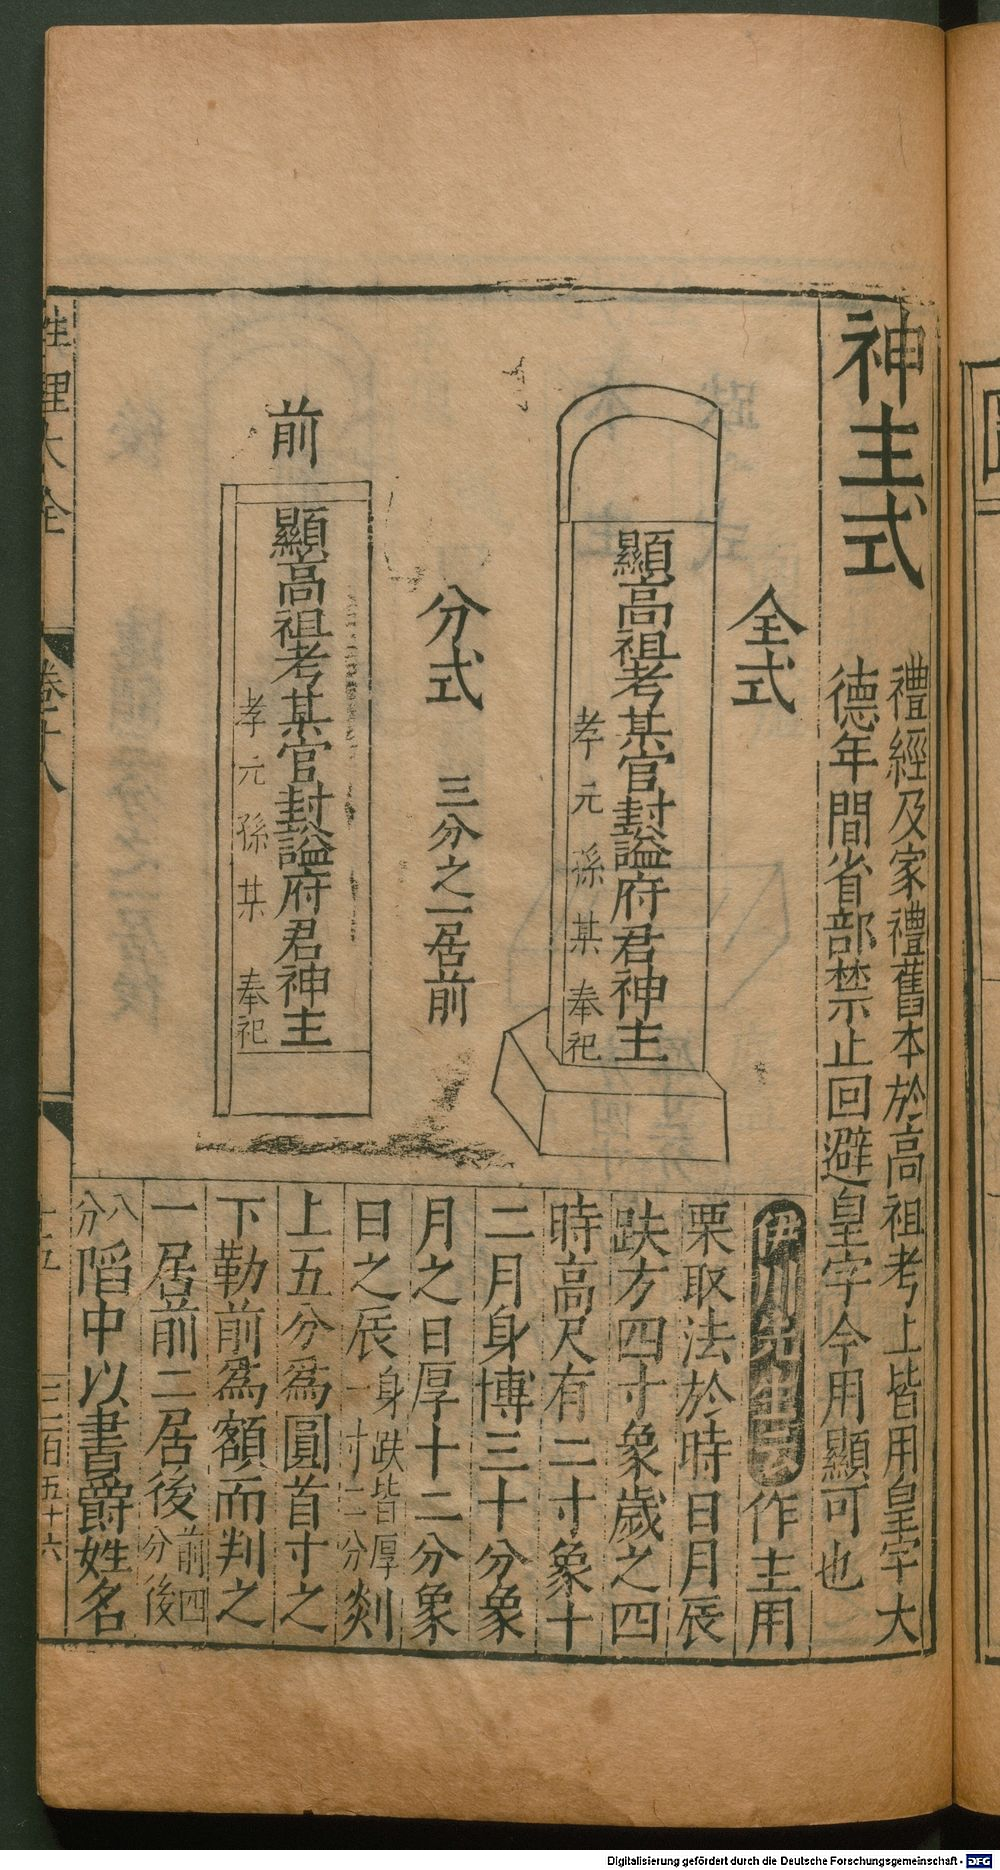 神主式
禮經及家禮舊本於高祖考上皆用皇字大
德年間省部禁止回避皇字今用顯可也
全式
顯高祖考某官封諡府君神主
孝元孫某奉祀
分式 三分之一居前
前
顯高祖考某官封諡府君神主
孝元孫某奉祀
伊川先生曰作主用
栗取法於時日月辰
趺方四寸象歲之四
時高尺有二寸象十
二月身博三十分象
月之日厚十二分象
日之辰身趺皆厚一寸二分剡
上五分為圓首寸之
下勒前為額而判之
一居前二居後前四分後
八分䧟中以書爵姓名
性理大全
卷十八
十五
三百五十六
Digitalisierung gefördert durch die Deutsche Forschungsgemeinschaft - DFG